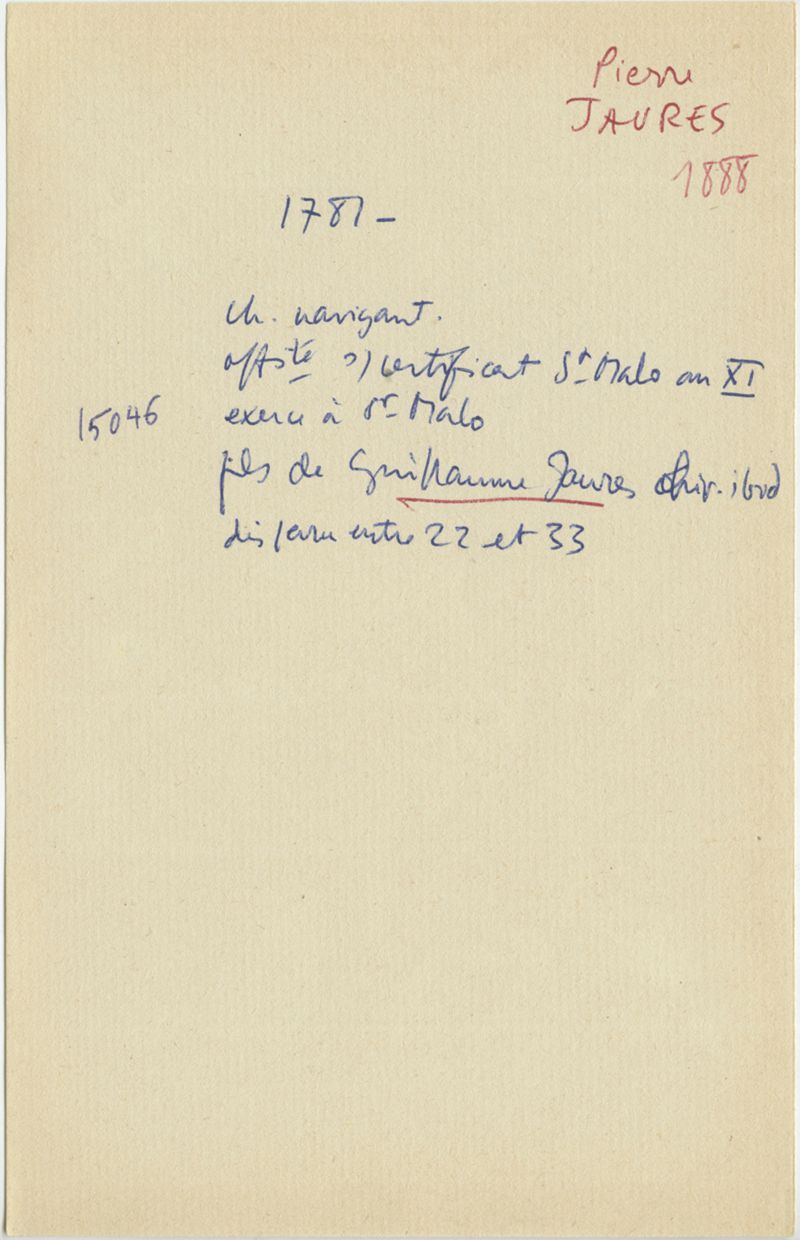 Pierre
JAURES
1888
1781 -
ch. navigant.
offsté s/ certificat St Malo an XI
15046 exerce à St Malo
fils de Guillaume Jaures chir. ibid
disparu entre 22 et 33